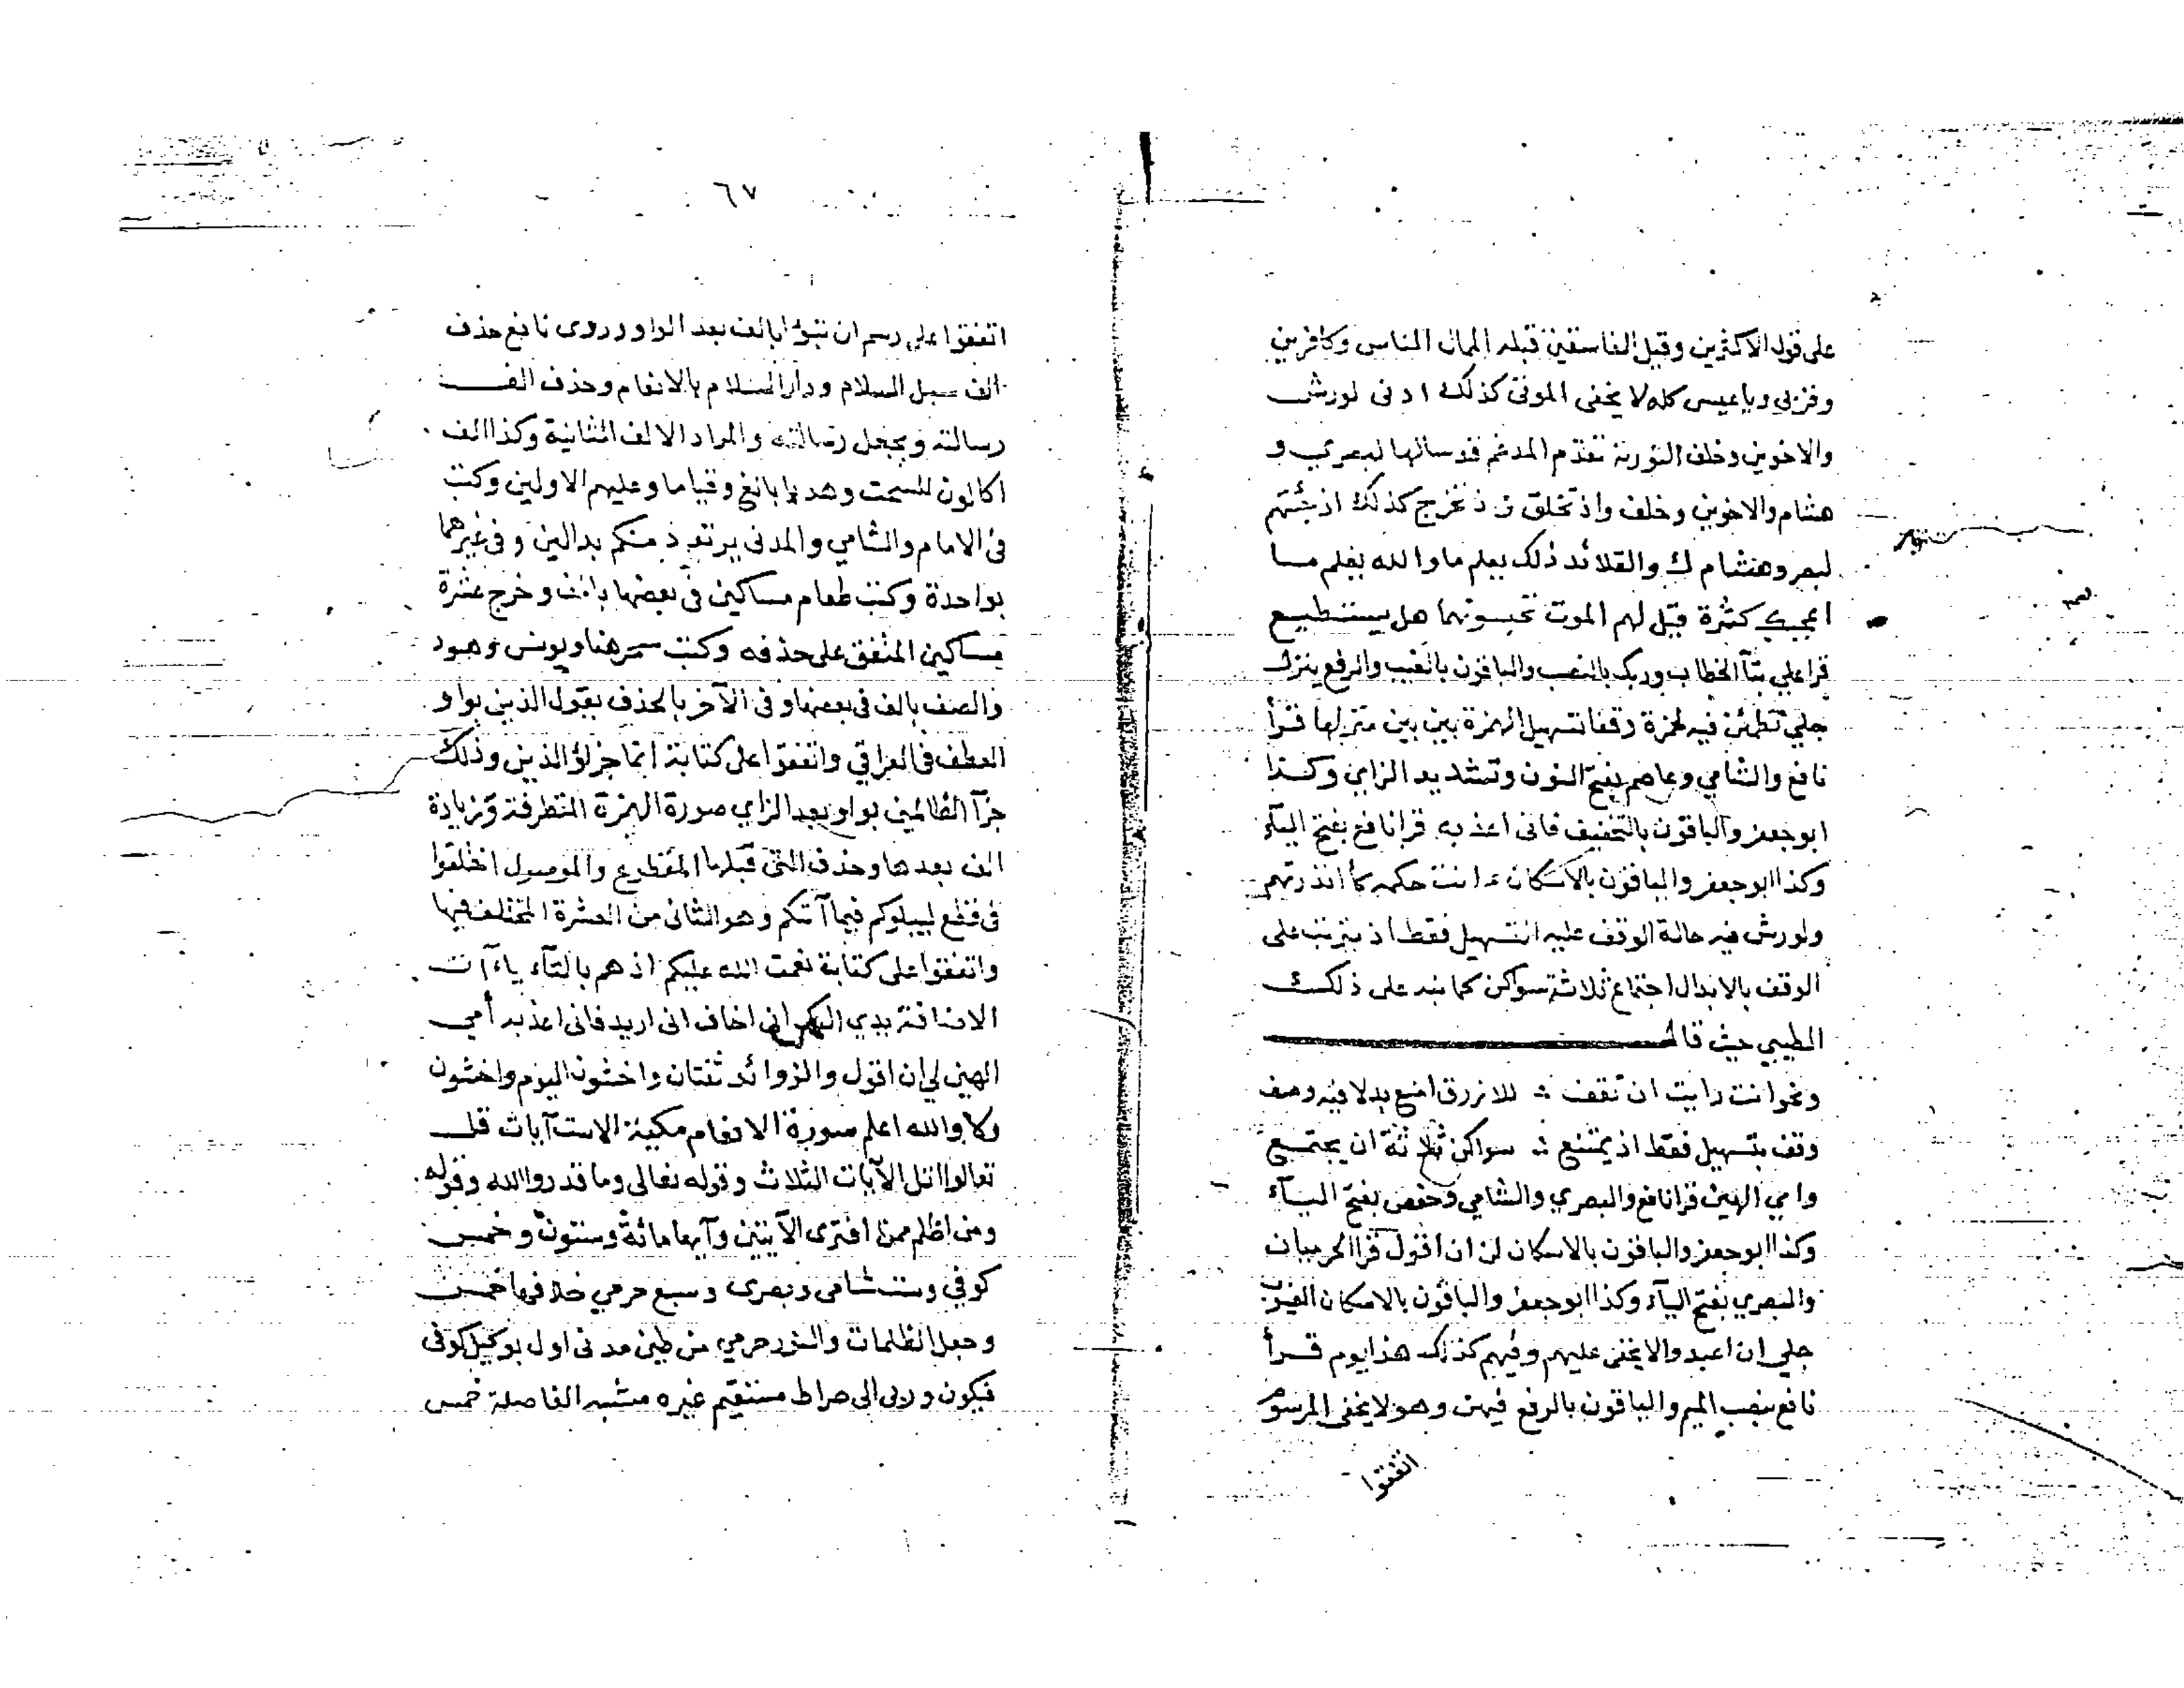 على قول الاكثرين وقيل الفاسقين قبله الممال الناس وكافرين
وقربى ويا عيسى كله لا يخفى الموتى كذلك ادنى لورش
والاخوين وخلف التورية تقدم المدغم قد سالها لبصري و
هشام والاخوين وخلف واذ تخلق اذ تخرج كذلك اذ جئتهم
لبصر وهشام ك والقلائد ذلك يعلم ما والله يعلم ما
اعجبك كثرة قيل لهم الموت تحبسونهما هل يستطيع
قرا علي بتآ الخطاب وربك بالنصب والباقون بالغيب والرفع ينزل
جلي تطمئن فيه لحمزة وقفا تسهيل الهمزة بين بين منزلها قرأ
نافع والشامي وعاصم بفتح النون وتشديد الزاي وكذا
ابو جعفر والباقون بالتخفيف فانى اعذبه قرا نافع بفتح اليآء
وكذا ابو جعفر والباقون بالاسكان ءانت حكمه كأانذرتهم
ولورش فيه حالة الوقف عليه التسهيل فقط اذ يترتب على
الوقف بالابدال اجتماع ثلاثة سواكن كما نبه على ذلك
الطيبي حيث قال
ونحو انت رايت ان تقف ∴ للازرق امنع بدلا فيه وصف
وقف بتسهيل فقط اذ يمتنع ∴ سواكن ثلاثة ان يجتمع
وامي الهين قرا نافع والبصري والشامي وحفص بفتح اليآء
وكذا ابو جعفر والباقون بالاسكان لى ان اقول قرا الحرميان
والبصري بفتح اليآء وكذا ابو جعفر والباقون بالاسكان الغيوب
جلي ان اعبدوا لا يخفى عليهم وفيهم كذلك هذا يوم قرأ
نافع بنصب الميم والباقون بالرفع فيهن وهو لا يخفى المرسوم
اتفقوا
٦٧
اتفقوا على رسم ان تبوأ بالف بعد الواو وروى نافع حذف
الف سبل السلام ودار السلام بالانعام وحذف الف
رسالته ويجعل رسالته والمراد الالف الثانية وكذا الف
اكالون للسحت وهديا بالغ وقياما وعليهم الاولين وكتب
في الامام والشامي والمدنى يرتدد منكم بدالين وفى غيرهما
بواحدة وكتب طعام مساكين فى بعضها بالف وخرج عشرة
مساكين المتفق على حذفه وكتب سحر هنا ويونس وهود
والصف بالف فى بعضها وفى الآخر بالحذف يقول الذين بواو
العطف فى العراقي واتفقوا على كتابة انما جزؤ الذين وذلك
جزآ الظالمين بواو بعد الزاي صورة الهمزة المتطرفة وزيادة
الف بعدها وحذف التى قبلها المقطوع والموصول اختلفوا
فى قطع ليبلوكم فيما آتكم وهو الثانى من العشرة المختلف فيها
واتفقوا على كتابة نعمت الله عليكم اذ هم بالتآء ياءآت
الاضافة يدي اليك اني اخاف انى اريد فانى اعذبه أمي
الهين لي ان اقول والزوائد ثنتان واخشون اليوم واخشون
ولا والله اعلم سورة الانعام مكية الا ست آيات قل
تعالوا اتل الآيات الثلاث وقوله تعالى وما قدروا الله وقوله
ومن اظلم ممن افترى الآيتين وآيها مائة وستون وخمس
كوفي وست شامى وبصرى وسبع حرمي خلافها خمس
وجعل الظلمات والنور حرمي من طين مدنى اول بوكيل كوفى
فيكون وربى الى صراط مستقيم غيره مشبه الفاصلة خمس